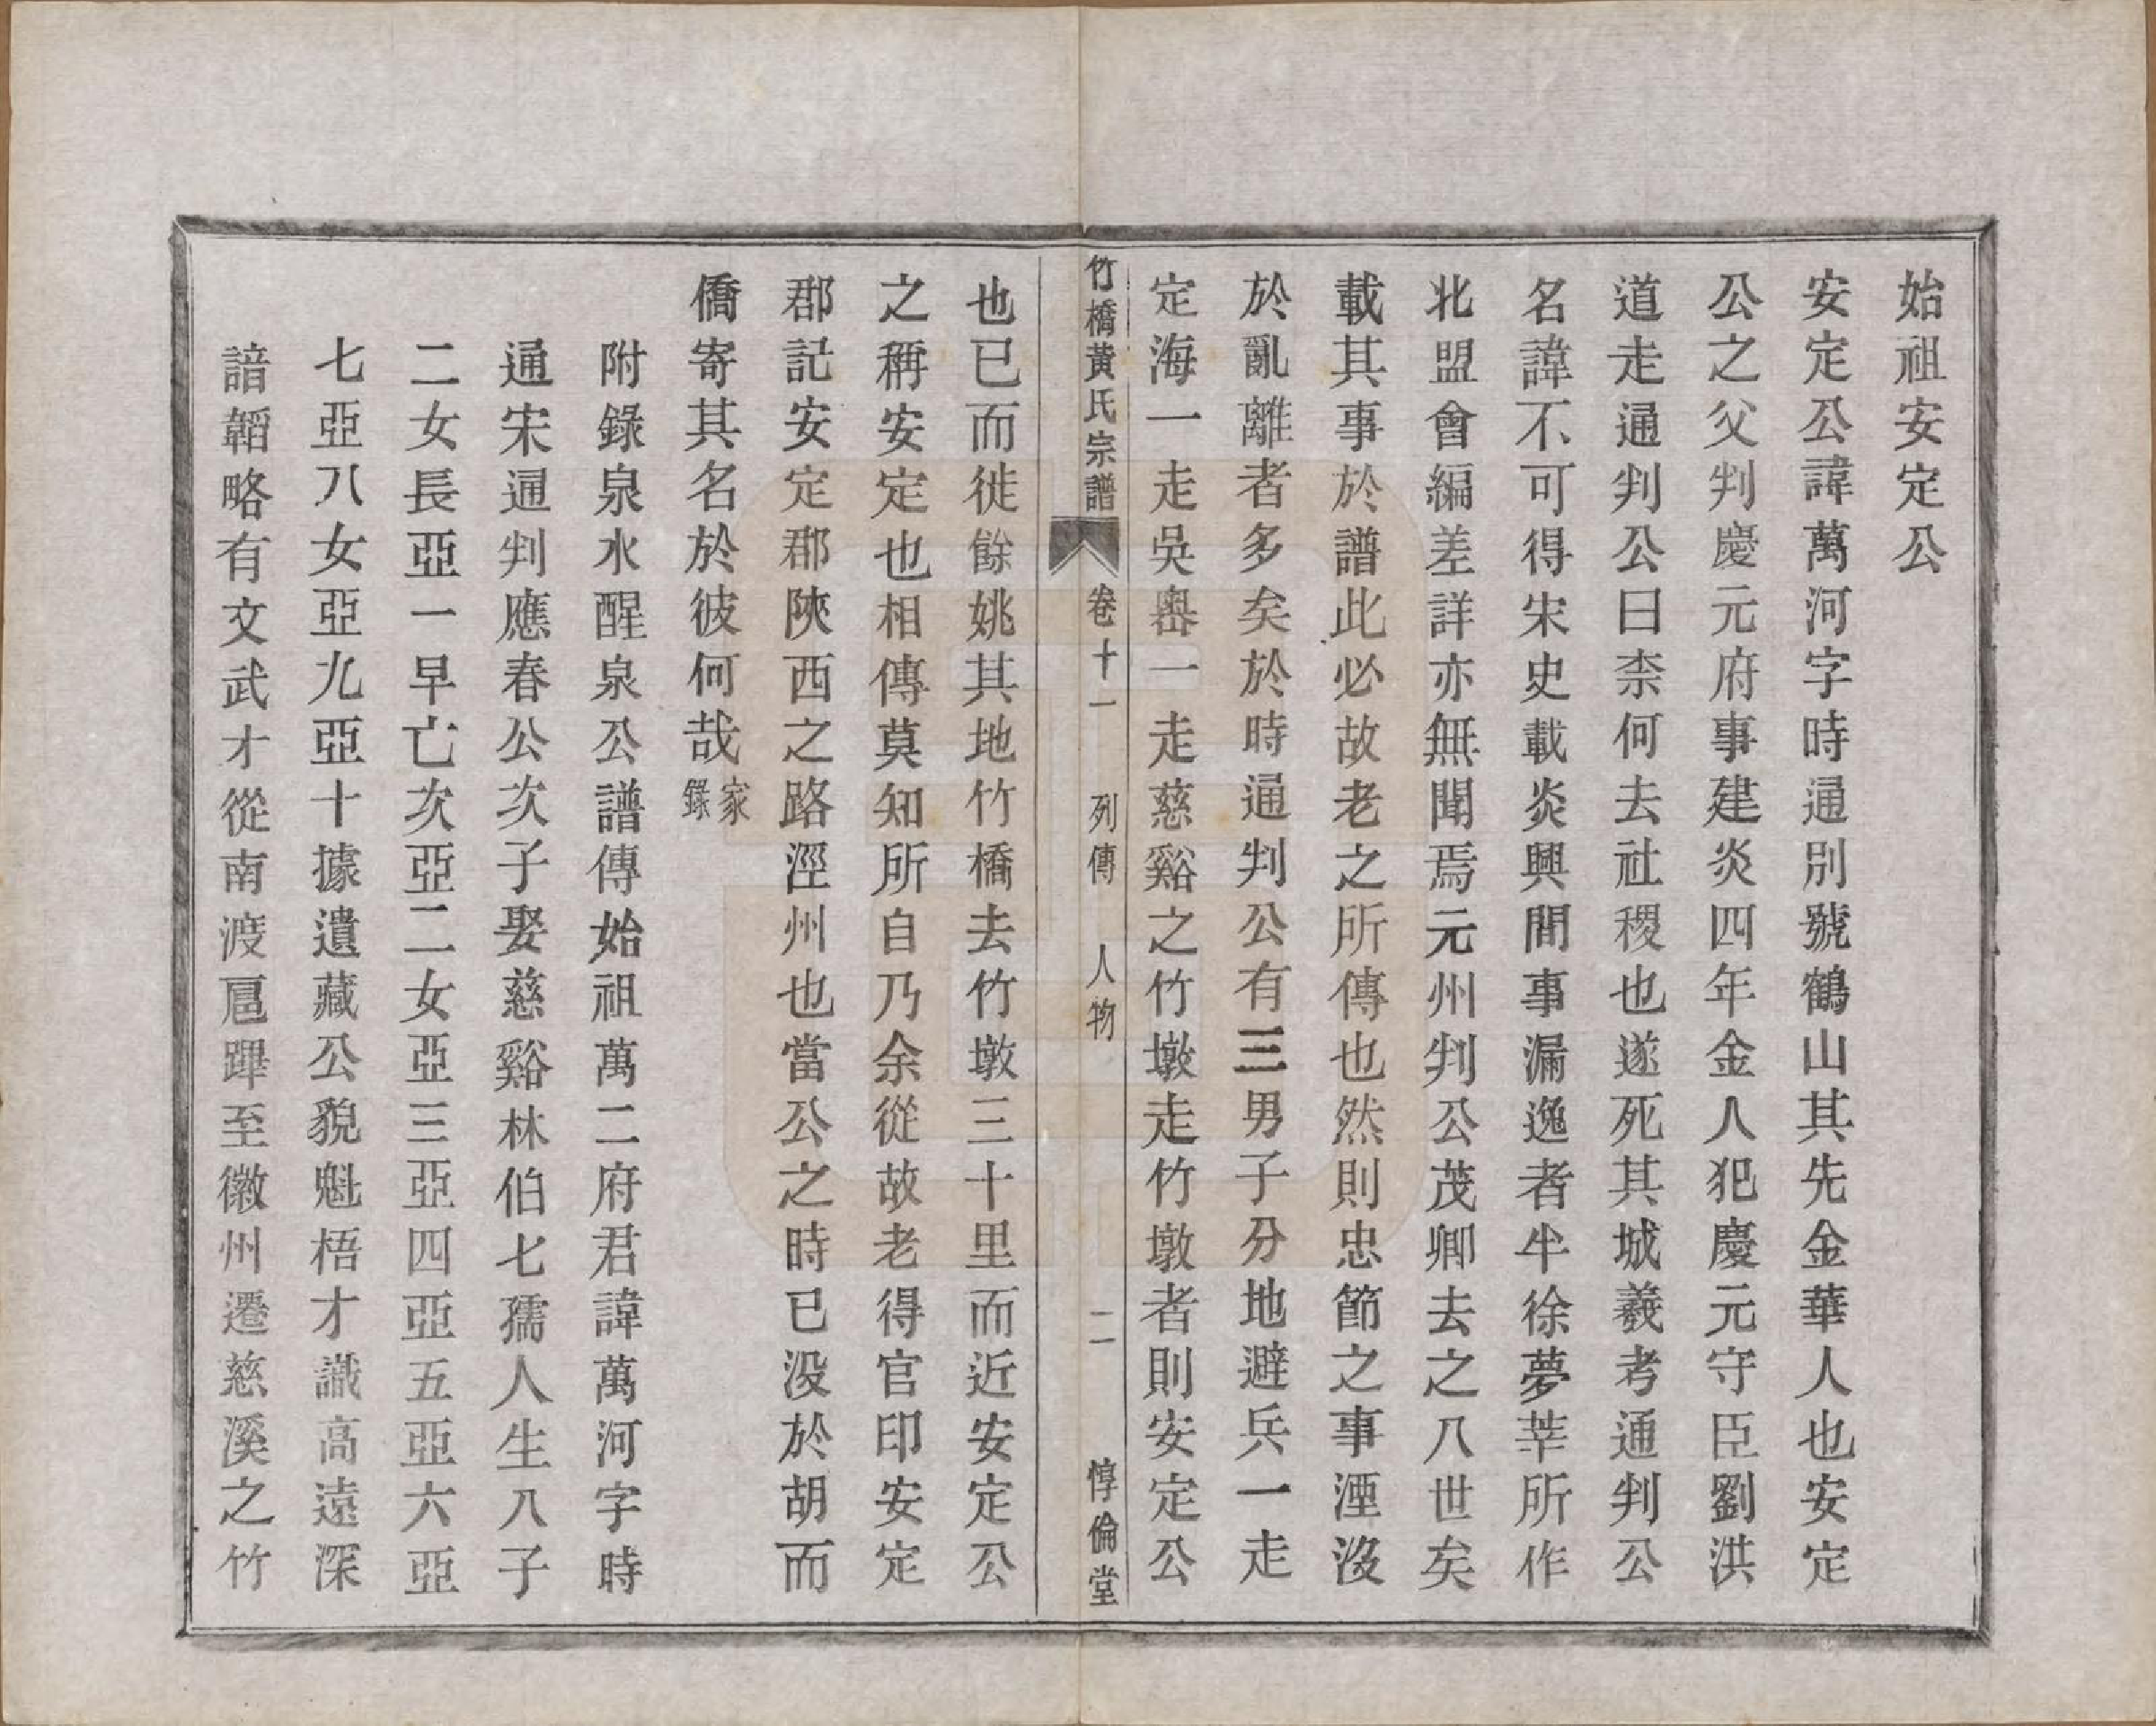 始祖安定公
安定公諱萬河字時通別號鶴山其先金華人也安定
公之父判慶元府事建炎四年金人犯慶元守臣劉洪
道走通判公曰柰何去社稷也遂死其城羲考通判公
名諱不可得宋史載炎興間事漏逸者半徐夢莘所作
北盟會編差詳亦無聞焉元州判公茂卿去之八世矣
載其事於譜此必故老之所傳也然則忠節之事湮沒
於亂離者多矣於時通判公有三男子分地避兵一走
定海一走吳嶴一走慈谿之竹墩走竹墩者則安定公
竹橋黃氏宗譜 卷十一 列傳 人物 二 惇倫堂
也已而徙餘姚其地竹橋去竹墩三十里而近安定公
之稱安定也相傳莫知所自乃余從故老得官印安定
郡記安定郡陝西之路涇州也當公之時已沒於胡而
僑寄其名於彼何哉家錄
附錄泉水醒泉公譜傳始祖萬二府君諱萬河字時
通宋通判應春公次子娶慈谿林伯七孺人生八子
二女長亞一早亡次亞二女亞三亞四亞五亞六亞
七亞八女亞九亞十據遺藏公貌魁梧才識高遠深
諳韜略有文武才從南渡扈蹕至徽州遷慈溪之竹